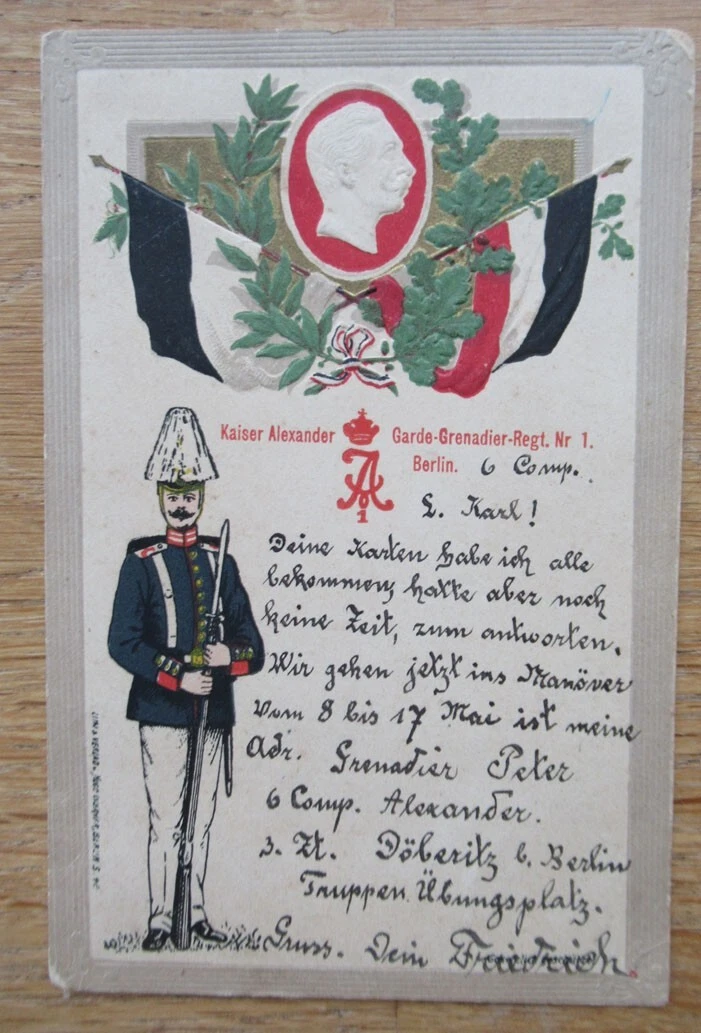 Kaiser Alexander Garde-Grenadier-Regt. Nr 1.
A
1
Berlin. 6 Comp.
L. Karl!
Deine Karten habe ich alle
bekommen, hatte aber noch
keine Zeit, zum antworten.
Wir gehen jetzt ins Manöver
vom 8 bis 17 Mai ist meine
Adr. Grenadier Peter
6 Comp. Alexander.
3. Zt. Döberitz b. Berlin
Truppen Übungsplatz.
Gruss. Dein Friedrich.